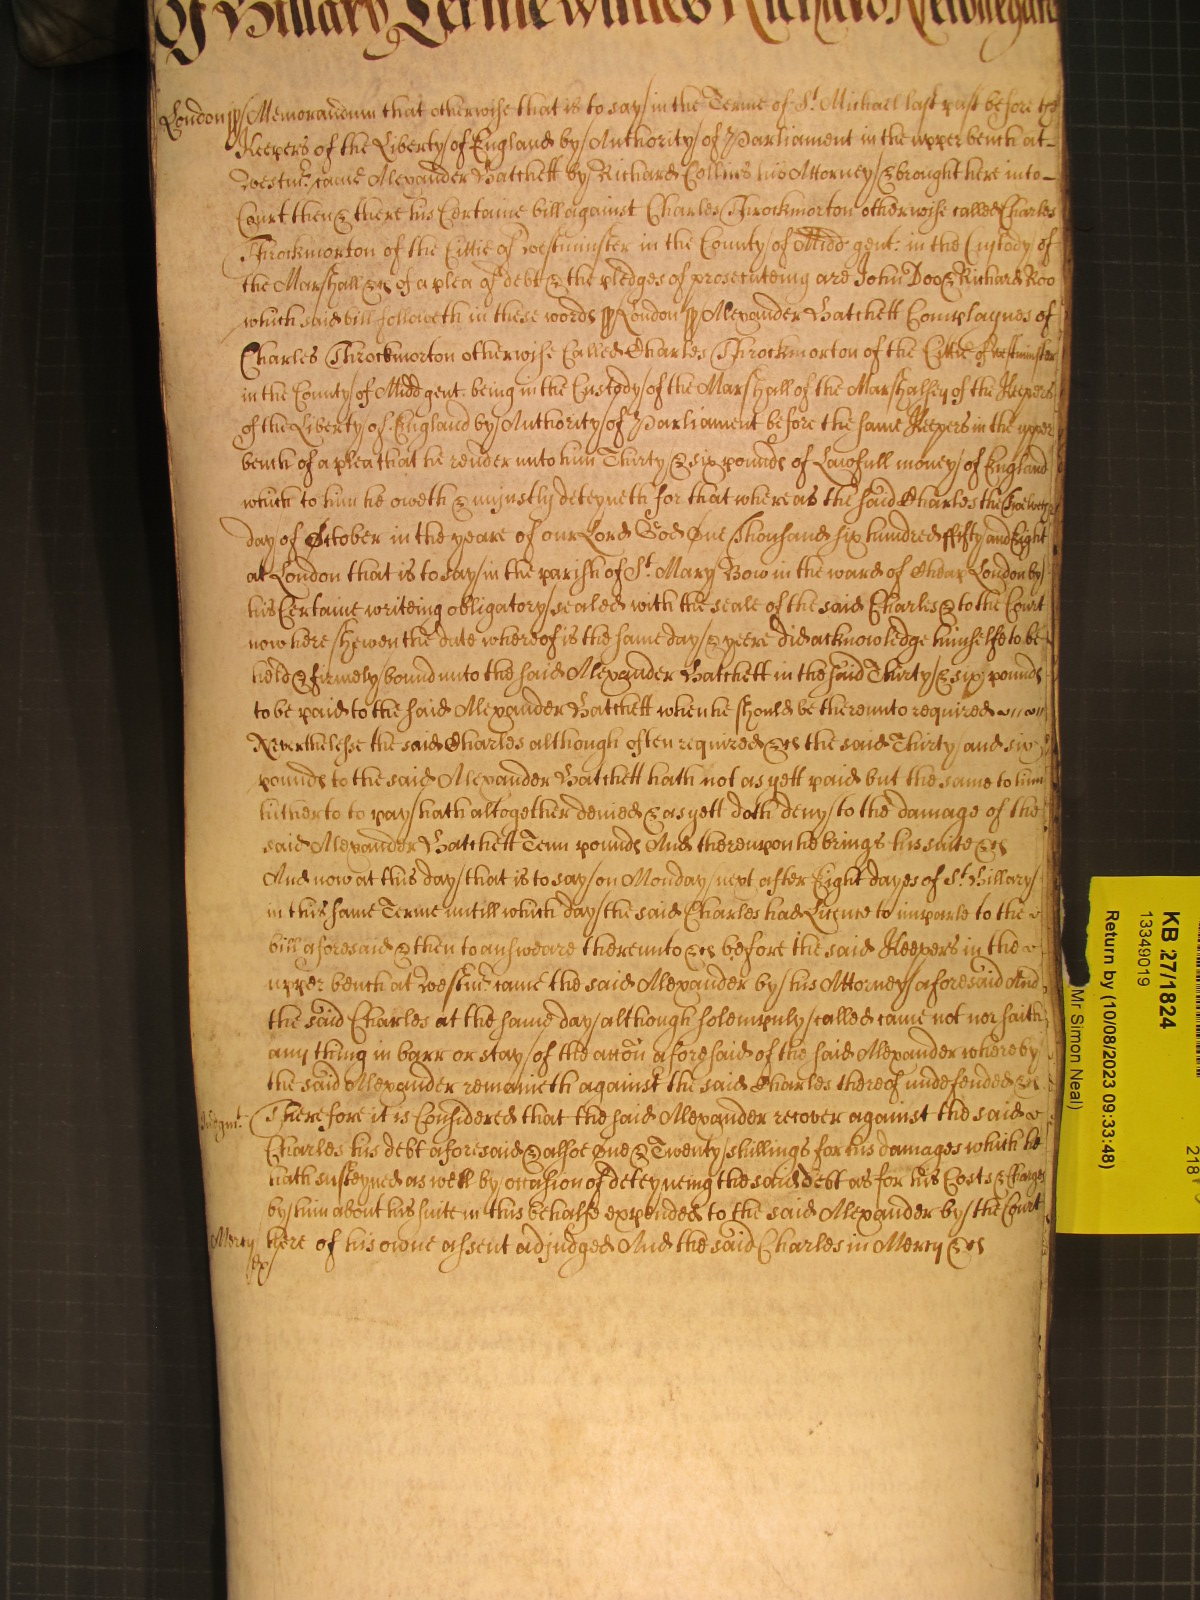 Of Hillary Terme witnes Richard Newdegate
London ss Memorandum that otherwise that is to say in the Terme of St. Michael last past before the
Keepers of the Liberty of England by Authority of Parliament in the upper bench at
Westmr. came Alexander Batchett by Richard Collins his Attorney & brought here into
Court then & there his Certaine bill against Charles Throckmorton otherwise called Charles
Throckmorton of the Cittie of Westminster in the County of Midd gent. in the Custody of
the Marshall &c of a plea of debt & the pledges of prosecuteing are John Doo & Richard Roo
which said bill followeth in these words ss London ss Alexander Batchett Complaynes of
Charles Throckmorton otherwise Called Charles Throckmorton of the Cittie of Westminster
in the County of Midd gent. being in the Custody of the Marshall of the Marshalsey of the Keepers
of the Liberty of England by Authority of Parliament before the same Keepers in the upper
bench of a plea that he render unto him Thirty & six pounds of Lawfull money of England
which to him he oweth & unjustly deteyneth for that whereas the said Charles the
day of October in the yeare of our Lord God One Thousand six hundred fifty and Eight
at London that is to say in the parish of St. Mary Bow in the ward of Cheap London by
his Certaine writeing obligatory sealed with the seale of the said Charles & to the Court
now here shewen the date whereof is the same day & yeere did acknowledge himselfe to be
held & firmely bound unto the said Alexander Batchett in the said Thirty & six pounds
to be paid to the said Alexander Batchett when he should be thereunto required
Neverthelesse the said Charles although often required &c the said Thirty and six
pounds to the said Alexander Batchett hath not as yett paid but the same to him
hitherto to pay hath altogether denied & as yett doth deny to the damage of the
said Alexander Batchett Tenn pounds And thereupon he brings his suite &c
And now at this day that is to say on Monday next after Eight dayes of St. Hillary
in this same Terme untill which day the said Charles had Licence to imparle to the
bill aforesaid & then to answeare thereunto &c before the said Keepers in the
upper bench at Westmr. came the said Alexander by his Attorney aforesaid And
the said Charles at the same day although solempnly called came not nor saith
any thing in barr or stay of the accon aforesaid of the said Alexander whereby
the said Alexander remaineth against the said Charles thereof undefended &c
Judgmt. Therefore it is Considered that the said Alexander recover against the said
Charles his debt aforesaid & alsoe One & Twenty shillings for his damages which he
hath susteyned as well by occasion of deteyneing the said debt as for his Costs & Charges
by him about his suite in this behalfe expended to the said Alexander by the Court
Mercy here of his owne assent adjudged And the said Charles in Mercy &c
ex
KB 27/1824
13349019
Return by (10/08/2023 09:33:48)
Mr Simon Neal)